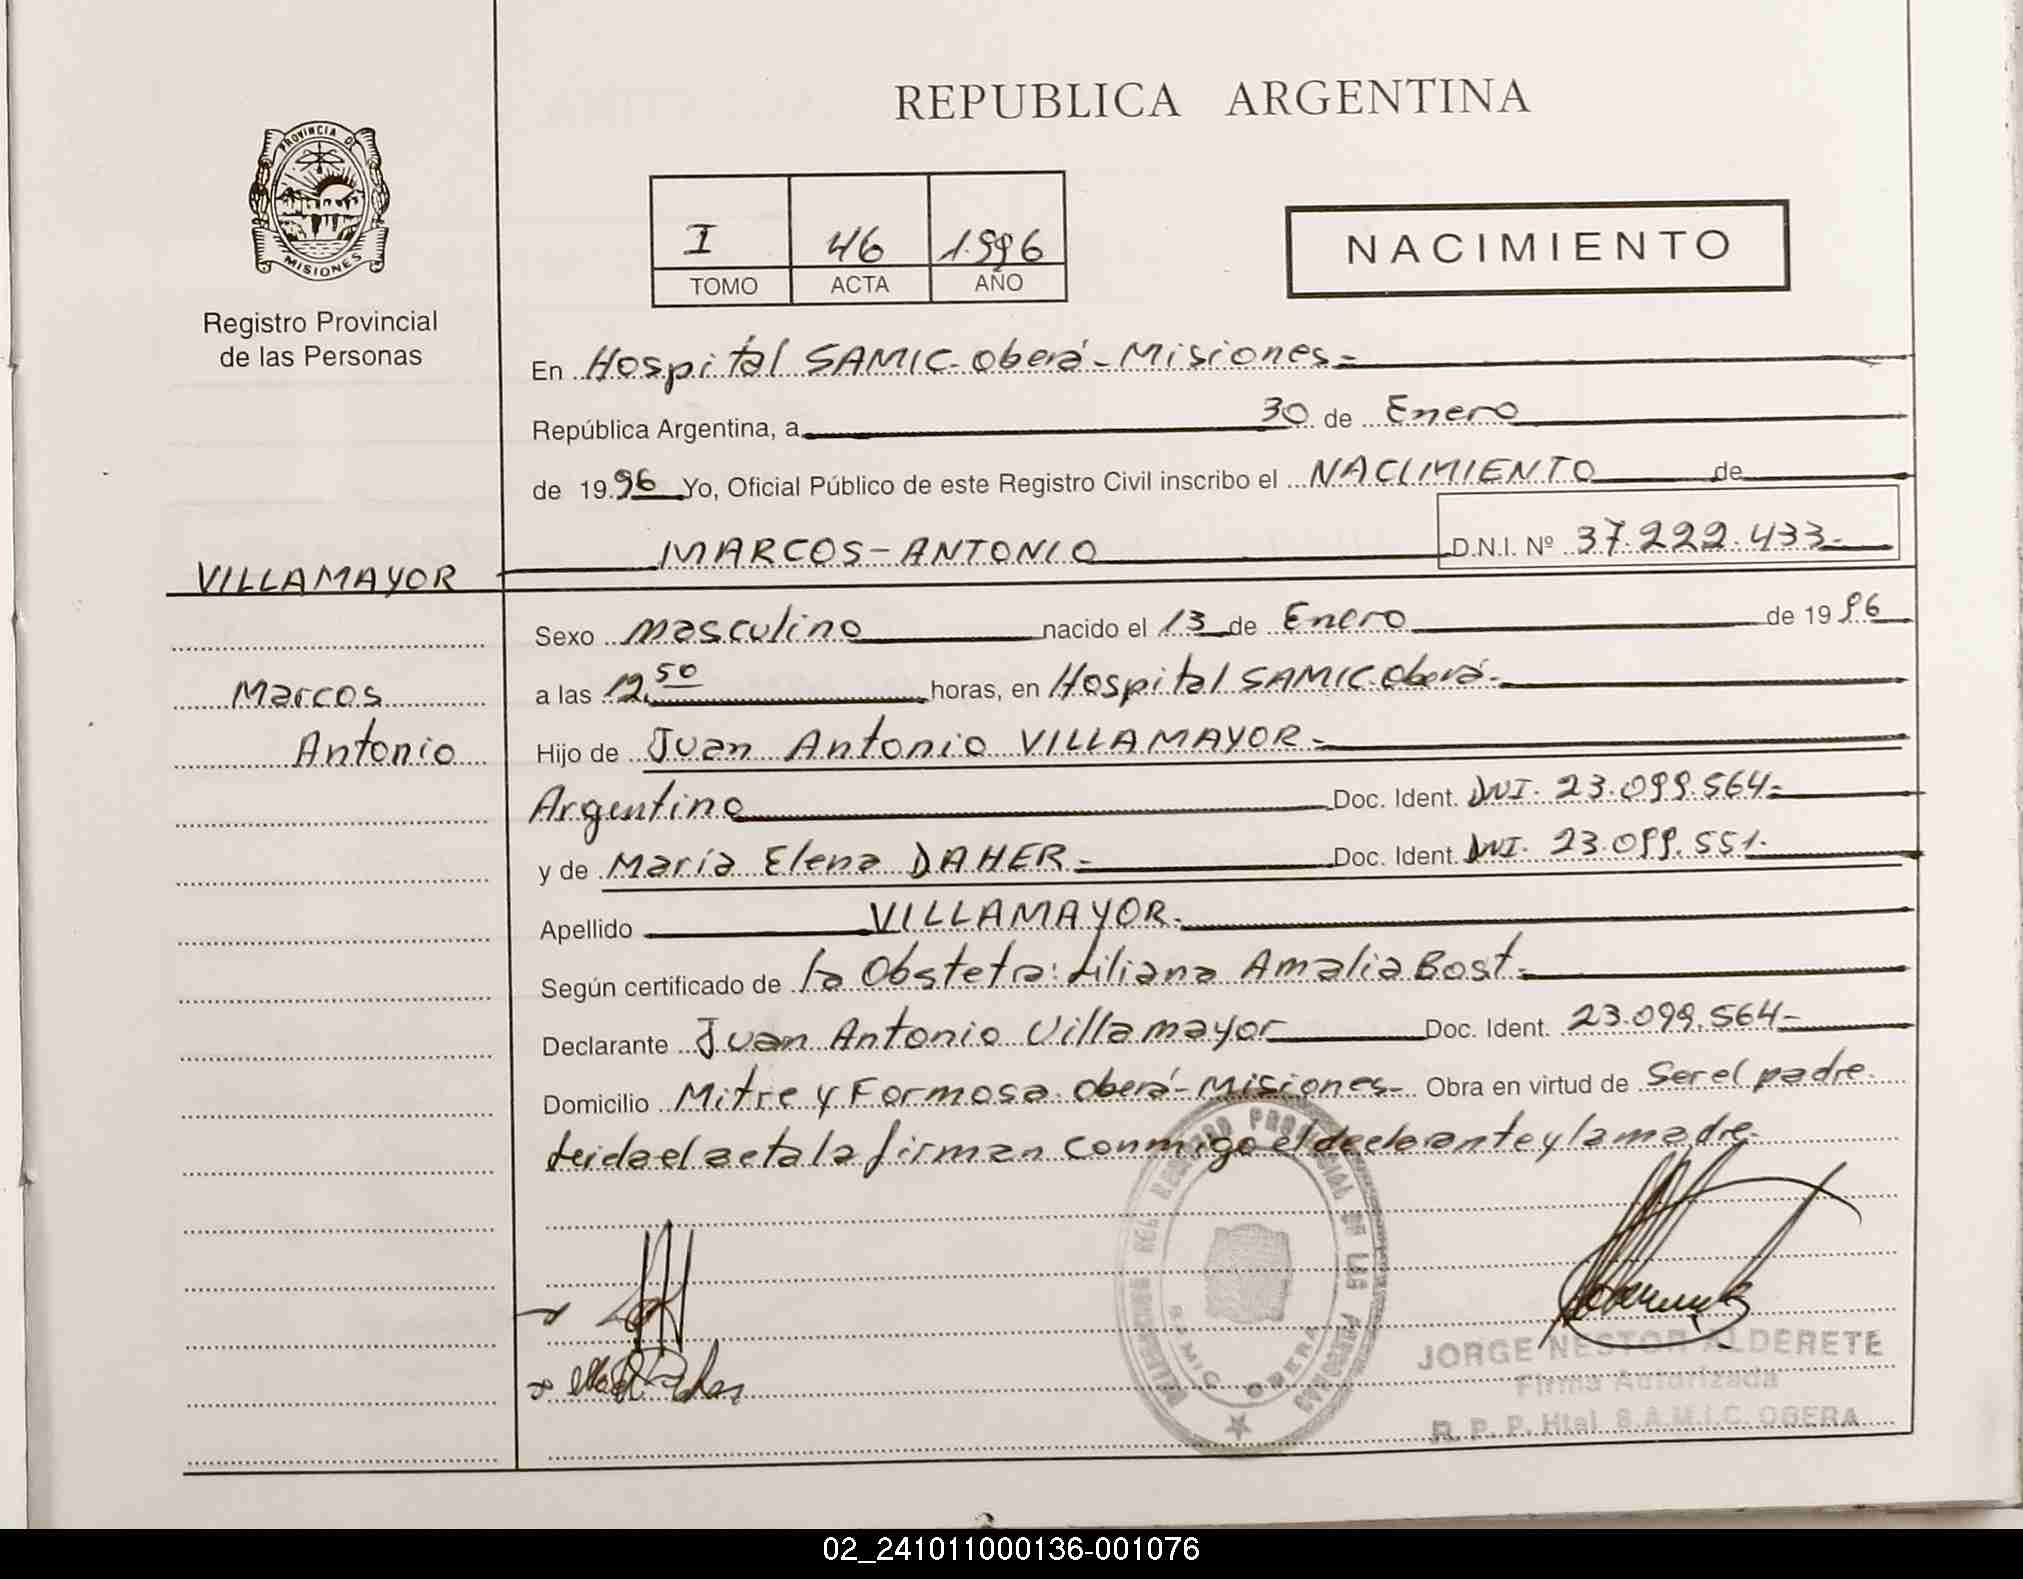 REPUBLICA ARGENTINA
PROVINCIA DE
MISIONES
Registro Provincial
de las Personas
I 46 1.996
TOMO ACTA AÑO
NACIMIENTO
En Hospital SAMIC-Oberá-Misiones=
República Argentina, a 30 de Enero
de 1996 Yo, Oficial Público de este Registro Civil inscribo el NACIMIENTO de
VILLAMAYOR MARCOS-ANTONIO D.N.I. Nº 37.222.433-
Sexo masculino nacido el 13 de Enero de 1996
Marcos
Antonio
a las 12.50 horas, en Hospital SAMIC Oberá-
Hijo de Juan Antonio VILLAMAYOR-
Argentino Doc. Ident. DNI. 23.099.564=
y de María Elena DAHER- Doc. Ident. DNI. 23.099.551-
Apellido VILLAMAYOR-
Según certificado de la Obstetra: Liliana Amalia Bost-
Declarante Juan Antonio Villamayor Doc. Ident. 23.099.564-
Domicilio Mitre y Formosa. Oberá-Misiones- Obra en virtud de Ser el padre.
Leida el acta la firman conmigo el declarante y la madre-
REGISTRO PROVINCIAL DE LAS PERSONAS
SAMIC OBERA
JORGE NESTOR ALDERETE
Firma Autorizada
R. P. P. Htal. S.A.M.I.C. OBERA
02_241011000136-001076